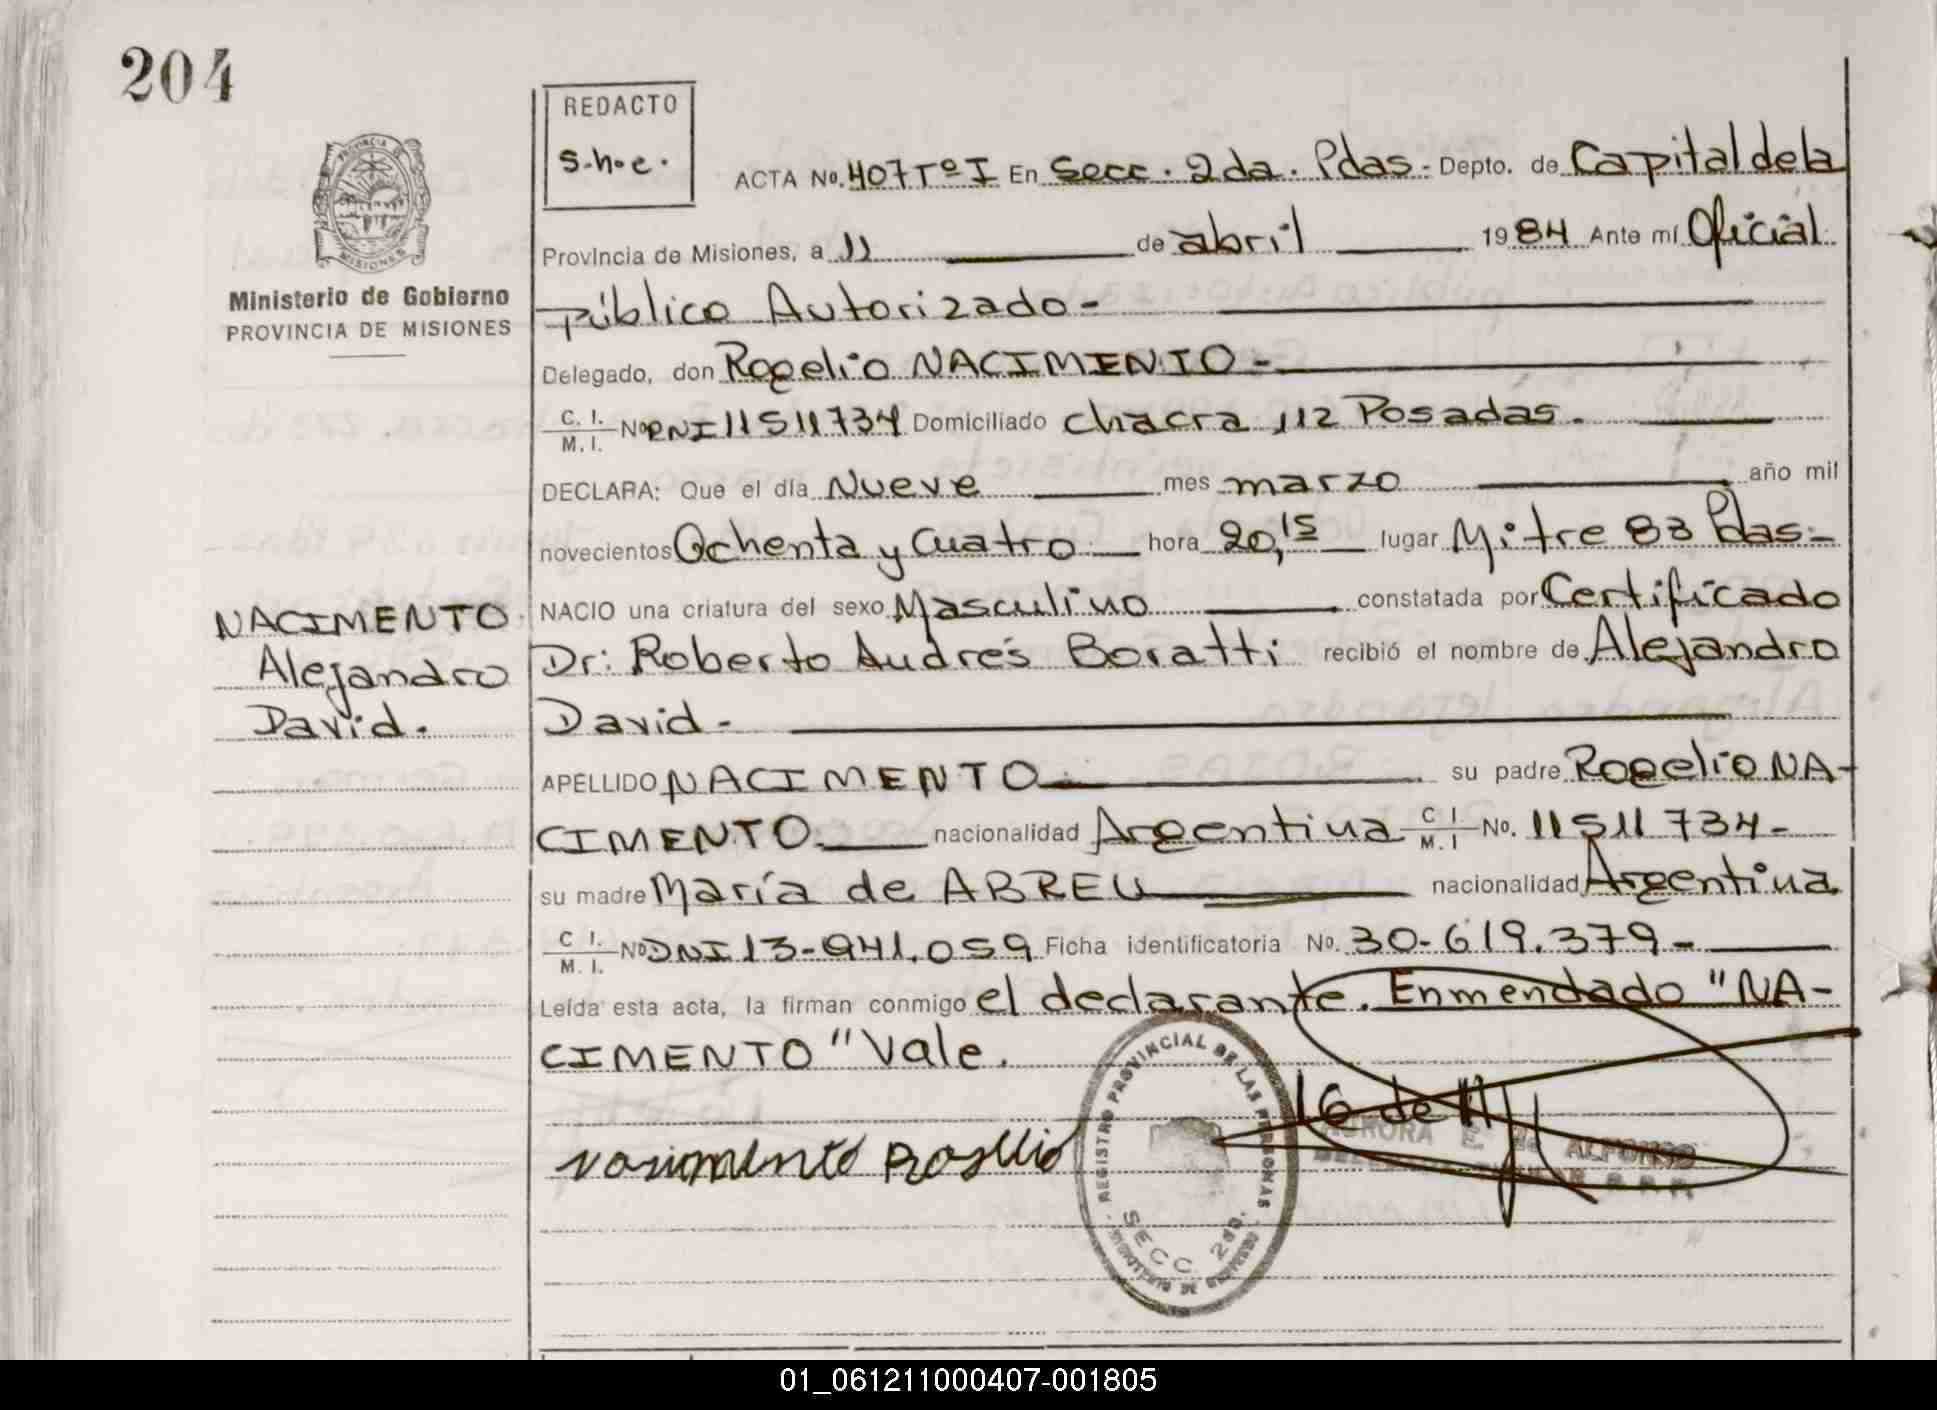 204
REDACTO
S.h.c.
PROVINCIA DE
MISIONES
Ministerio de Gobierno
PROVINCIA DE MISIONES
ACTA No. 407 Tº I En Secc. 2da. Pdas- Depto. de Capital de la
Provincia de Misiones, a 11 de abril 1984 Ante mí Oficial
Público Autorizado-
Delegado, don Rogelio NACIMENTO-
C. I. / M. I. No DNI 11511734 Domiciliado chacra 112 Posadas.
DECLARA: Que el día Nueve mes marzo año mil
novecientos Ochenta y Cuatro hora 20,15 lugar Mitre 83 Pdas-
NACIO una criatura del sexo Masculino constatada por Certificado
Dr: Roberto Andrés Boratti recibió el nombre de Alejandro
David-
NACIMENTO
Alejandro
David.
APELLIDO NACIMENTO su padre Rogelio NA-
CIMENTO nacionalidad Argentina C I. / M. I No. 11511734-
su madre María de ABREU nacionalidad Argentina
C I. / M. I. No DNI 13-941.059 Ficha identificatoria No. 30-619.379-
Leída esta acta, la firman conmigo el declarante. Enmendado "NA-
CIMENTO" Vale.
REGISTRO PROVINCIAL DE LAS PERSONAS
SECC. 2da.
AURORA E. de ALFONSO
01_061211000407-001805